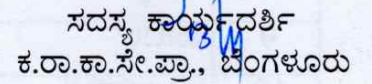 ಸದಸ್ಯ ಕಾರ್ಯದರ್ಶಿ
ಕ.ರಾ.ಕಾ.ಸೇ.ಪ್ರಾ., ಬೆಂಗಳೂರು